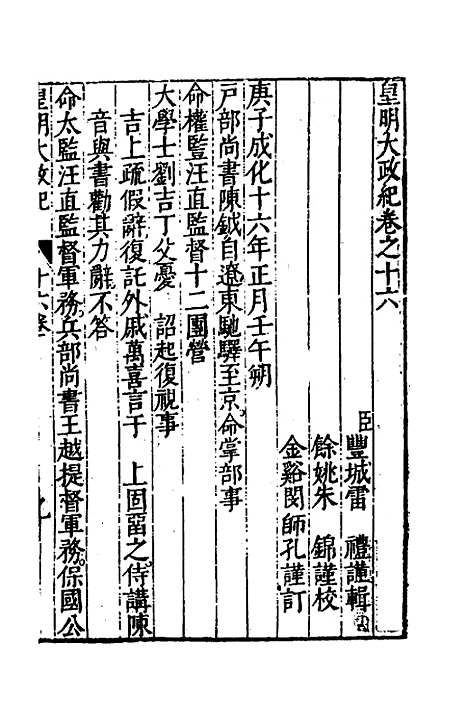 皇明大政紀卷之十六
臣豐城雷　禮謹輯
餘姚朱　錦謹校
金谿閔師孔謹訂
庚子成化十六年正月壬午朔
戸部尚書陳鉞自遼東馳驛至京命掌部事
命權監汪直監督十二團營
大學士劉吉丁父憂　詔起復視事
吉上疏假辭復託外戚萬喜言于　上固畱之侍講陳
音與書勸其力辭不答
命太監汪直監督軍務兵部尚書王越提督軍務保國公
皇明大政紀　十六卷